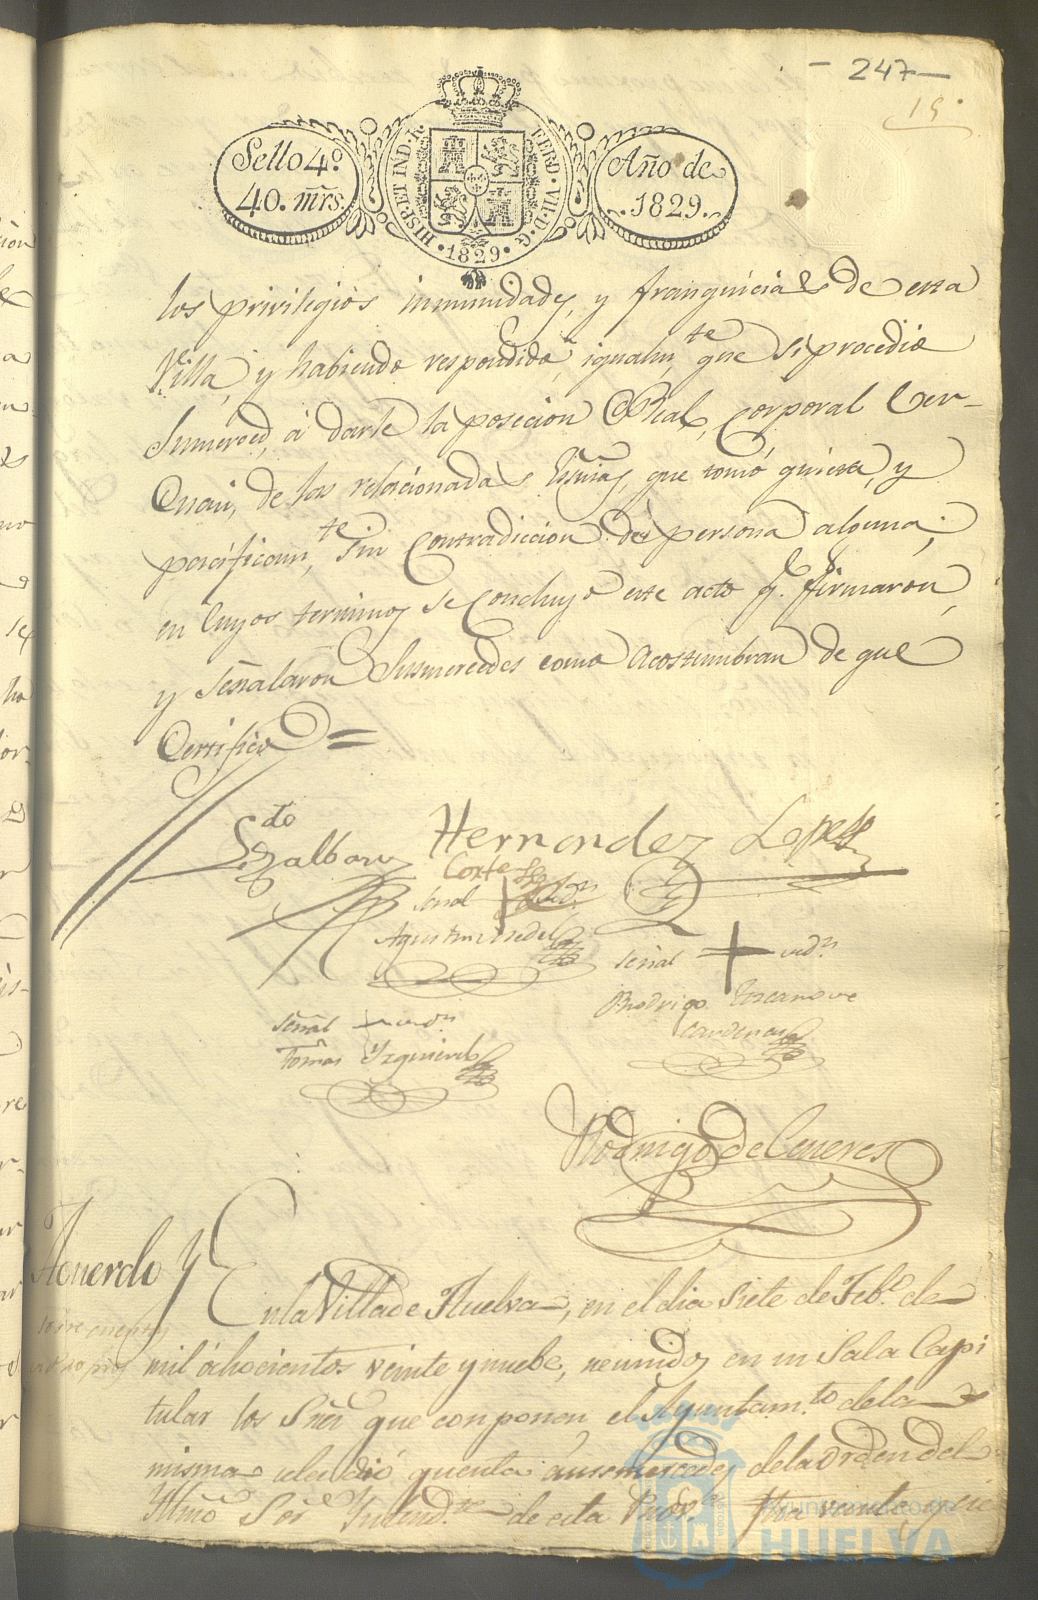 - 247 -
15
Sello 4º
40. mrs.
HISP. ET IND. R.
FERD. VII. D. G.
1829
Año de
1829.
los privilegios inmunidades, y franquicias de esta
Villa, y habiendo respondido, igualmte que si procedio
Sumerced, á darle la posecion Rl. Real, corporal vel
Quasi, de las relacionadas que tomó quieta, y
pacificamte, sin contradiccion de persona alguna;
en cuyos terminos se concluyó este acto q. firmaron,
y señalaron Susmercedes como acostumbran de que
Certifico =
Ldo
Hernandez Lopez
Cortes
Señal + del Rdor
Señal + redor
Rodrigo Toscano
Cardenas
Señal + redor
Tomas Yzquierdo
Rodrigo de Ceneres
Acuerdo y
En la Villa de Huelva, en el dia siete de Febo. de
mil ochocientos veinte y nuebe, reunidos en su Sala Capi
tular los Sres. que conponen el Ayuntamto de la
misma se les dió quenta a sus mercedes de la orden del
Yllmo Sor Yntendte de esta Provª. fha veinte y
Ayuntamiento de
HUELVA